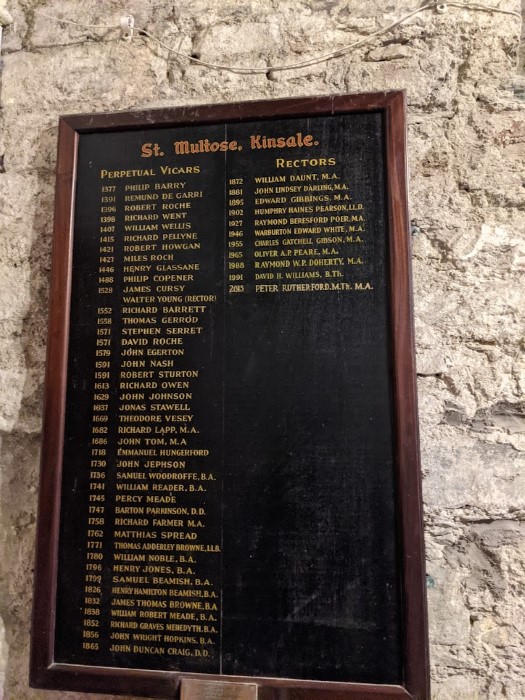 St. Multose, Kinsale.
PERPETUAL VICARS
1377 PHILIP BARRY
1391 REMUND DE GARRI
1396 ROBERT ROCHE
1398 RICHARD WENT
1407 WILLIAM WELLIS
1415 RICHARD PELLYNE
1421 ROBERT HOWGAN
1427 MILES ROCH
1446 HENRY GLASSANE
1488 PHILIP COPENER
1528 JAMES CURSY
WALTER YOUNG (RECTOR)
1552 RICHARD BARRETT
1558 THOMAS GERROD
1571 STEPHEN SERRET
1571 DAVID ROCHE
1579 JOHN EGERTON
1591 JOHN NASH
1591 ROBERT STURTON
1613 RICHARD OWEN
1629 JOHN JOHNSON
1637 JONAS STAWELL
1669 THEODORE VESEY
1682 RICHARD LAPP, M.A.
1686 JOHN TOM, M.A
1718 EMMANUEL HUNGERFORD
1730 JOHN JEPHSON
1736 SAMUEL WOODROFFE, B.A.
1741 WILLIAM READER, B.A.
1745 PERCY MEADE
1747 BARTON PARKINSON, D.D.
1758 RICHARD FARMER M.A.
1762 MATTHIAS SPREAD
1771 THOMAS ADDERLEY BROWNE, LL.B.
1780 WILLIAM NOBLE, B.A.
1796 HENRY JONES, B.A.
1799 SAMUEL BEAMISH, B.A.
1826 HENRY HAMILTON BEAMISH, B.A.
1832 JAMES THOMAS BROWNE, B.A
1838 WILLIAM ROBERT MEADE, B.A.
1852 RICHARD GRAVES MEREDYTH, B.A.
1856 JOHN WRIGHT HOPKINS, B.A.
1865 JOHN DUNCAN CRAIG, D.D.
RECTORS
1872 WILLIAM DAUNT, M.A.
1881 JOHN LINDSEY DARLING, M.A.
1895 EDWARD GIBBINGS, M.A.
1902 HUMPHRY HAINES PEARSON, LL.D.
1927 RAYMOND BERESFORD POER, M.A.
1946 WARBURTON EDWARD WHITE, M.A.
1955 CHARLES GATCHELL GIBSON, M.A.
1965 OLIVER A.P. PEARE, M.A.
1988 RAYMOND W.P. DOHERTY, M.A.
1991 DAVID H. WILLIAMS, B.Th.
PETER RUTHERFORD. M.Th. M.A.